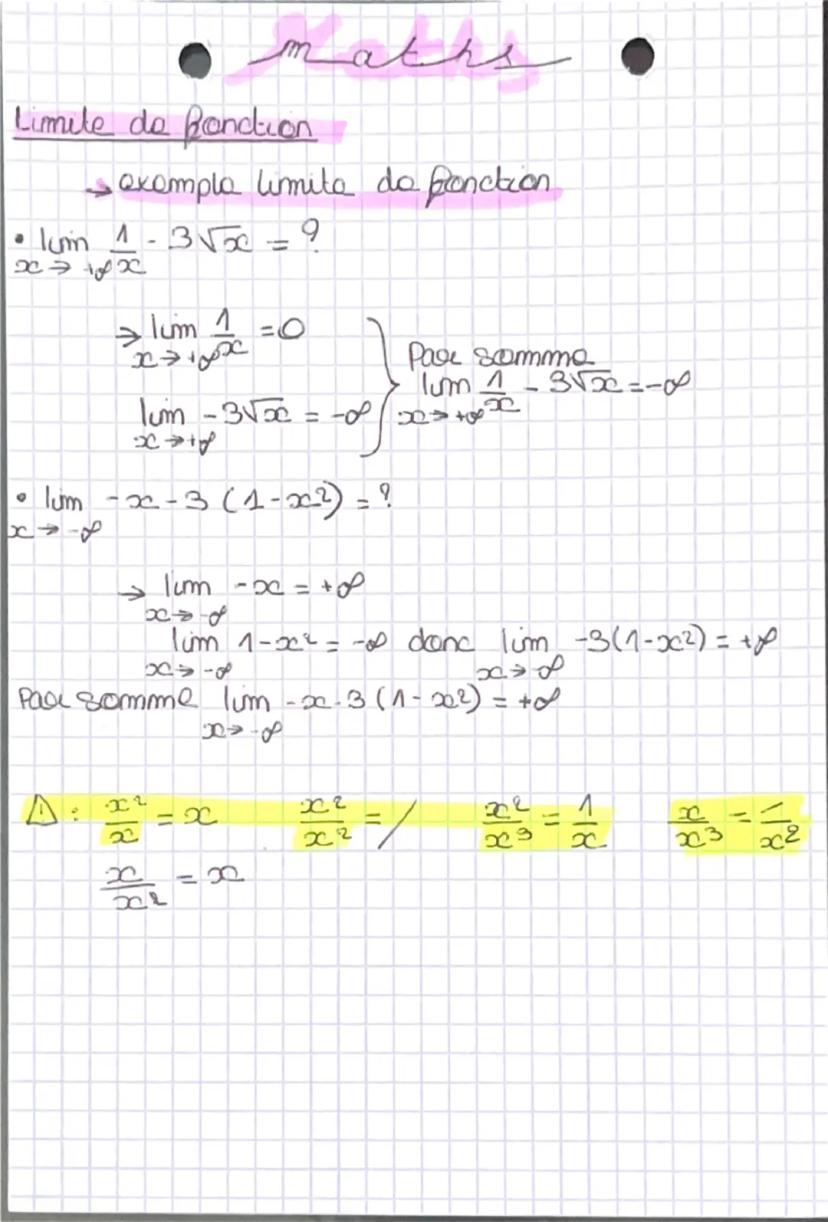 Maths
Limite de fonction
→ exemple limite de fonction
• lim 1/x - 3√x = ?
x → +∞
→ lim 1/x = 0
x → +∞
lim -3√x = -∞
x → +∞
Par somme
lim 1/x - 3√x = -∞
x → +∞
• lim -x - 3 (1 - x²) = ?
x → -∞
→ lim -x = +∞
x → -∞
lim 1 - x² = -∞ donc lim -3(1 - x²) = +∞
x → -∞ x → -∞
Par somme lim -x - 3 (1 - x²) = +∞
x → -∞
⚠ : x²/x = x x²/x² = / x²/x³ = 1/x x/x³ = 1/x²
x/x² = x